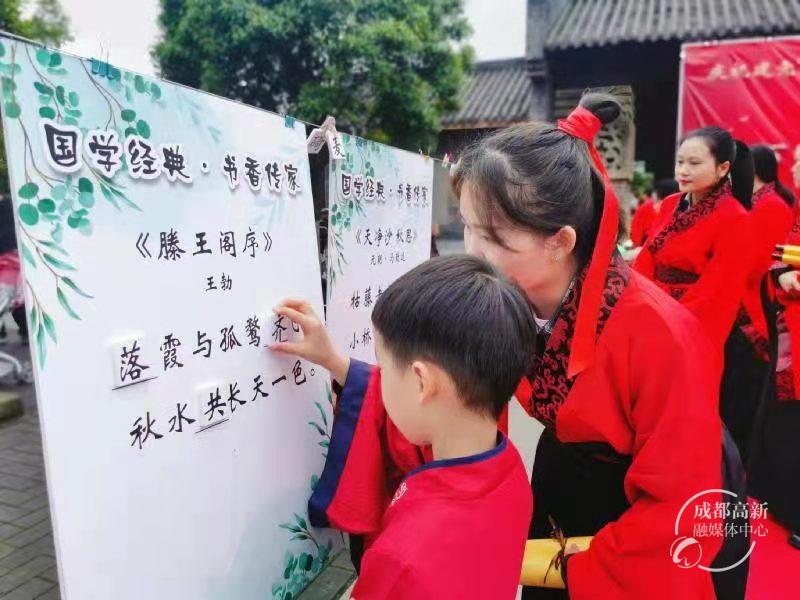 国学经典·书香传家
《滕王阁序》
王勃
落霞与孤鹜齐
秋水共长天一色。
国学经典·书香传
《天净沙 秋思》
枯藤
小桥
庆祝建党
成都高新
融媒体中心